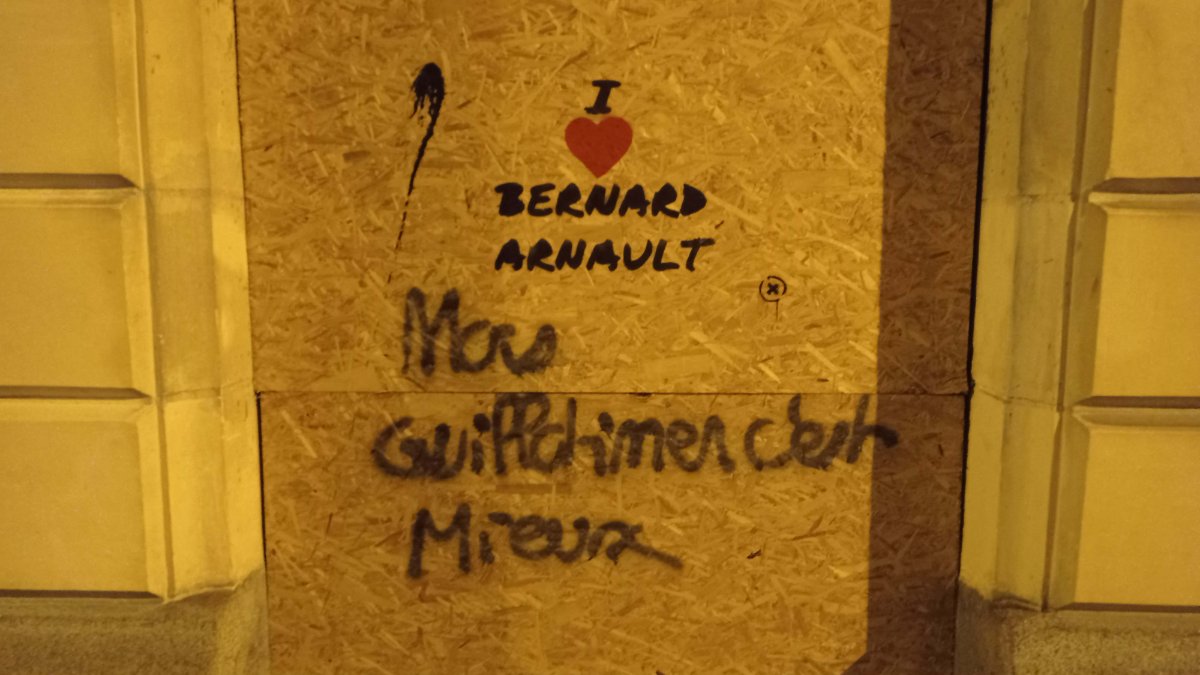 I ♥
BERNARD
ARNAULT
Mais
Guillotiner c'est
Mieux